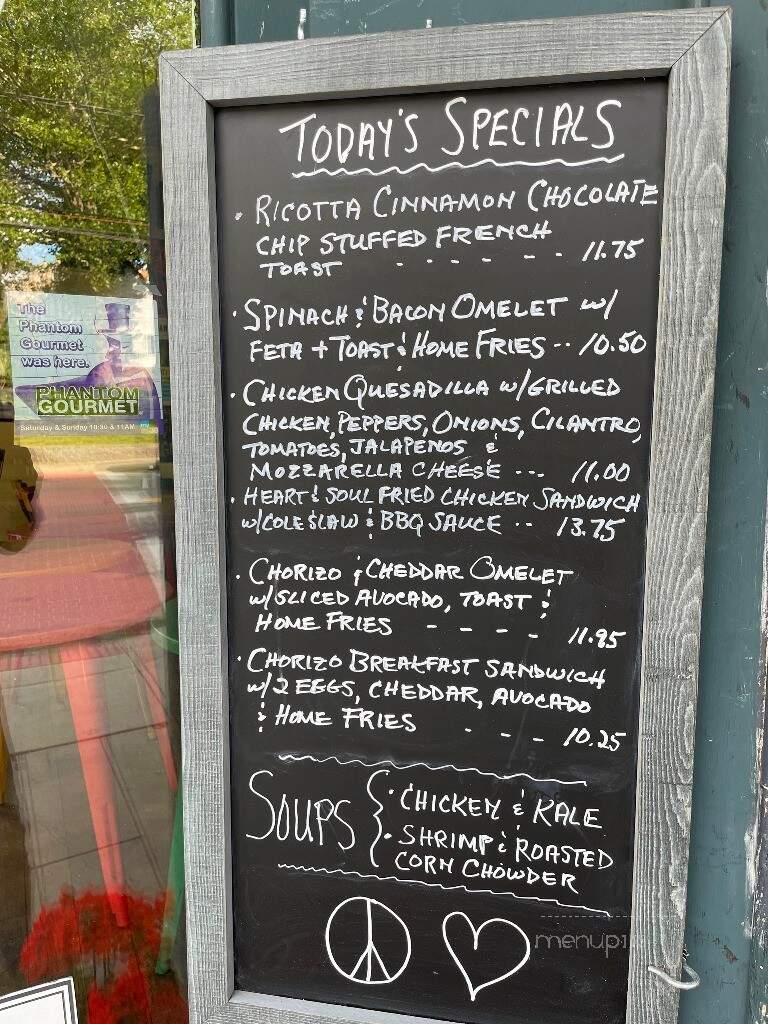 TODAY'S SPECIALS
• RICOTTA CINNAMON CHOCOLATE
CHIP STUFFED FRENCH
TOAST - - - - - - 11.75
• SPINACH & BACON OMELET w/
FETA + TOAST & HOME FRIES -- 10.50
• CHICKEN QUESADILLA w/GRILLED
CHICKEN, PEPPERS, ONIONS, CILANTRO,
TOMATOES, JALAPENOS &
MOZZARELLA CHEESE --- 11.00
• HEART & SOUL FRIED CHICKEN SANDWICH
w/COLESLAW & BBQ SAUCE -- 13.75
• CHORIZO & CHEDDAR OMELET
w/SLICED AVOCADO, TOAST &
HOME FRIES - - - - 11.95
• CHORIZO BREAKFAST SANDWICH
w/2 EGGS, CHEDDAR, AVOCADO
& HOME FRIES - - - 10.25
SOUPS
• CHICKEN & KALE
• SHRIMP & ROASTED
CORN CHOWDER
The
Phantom
Gourmet
was here.
PHANTOM
GOURMET
Saturday & Sunday 10:30 & 11AM